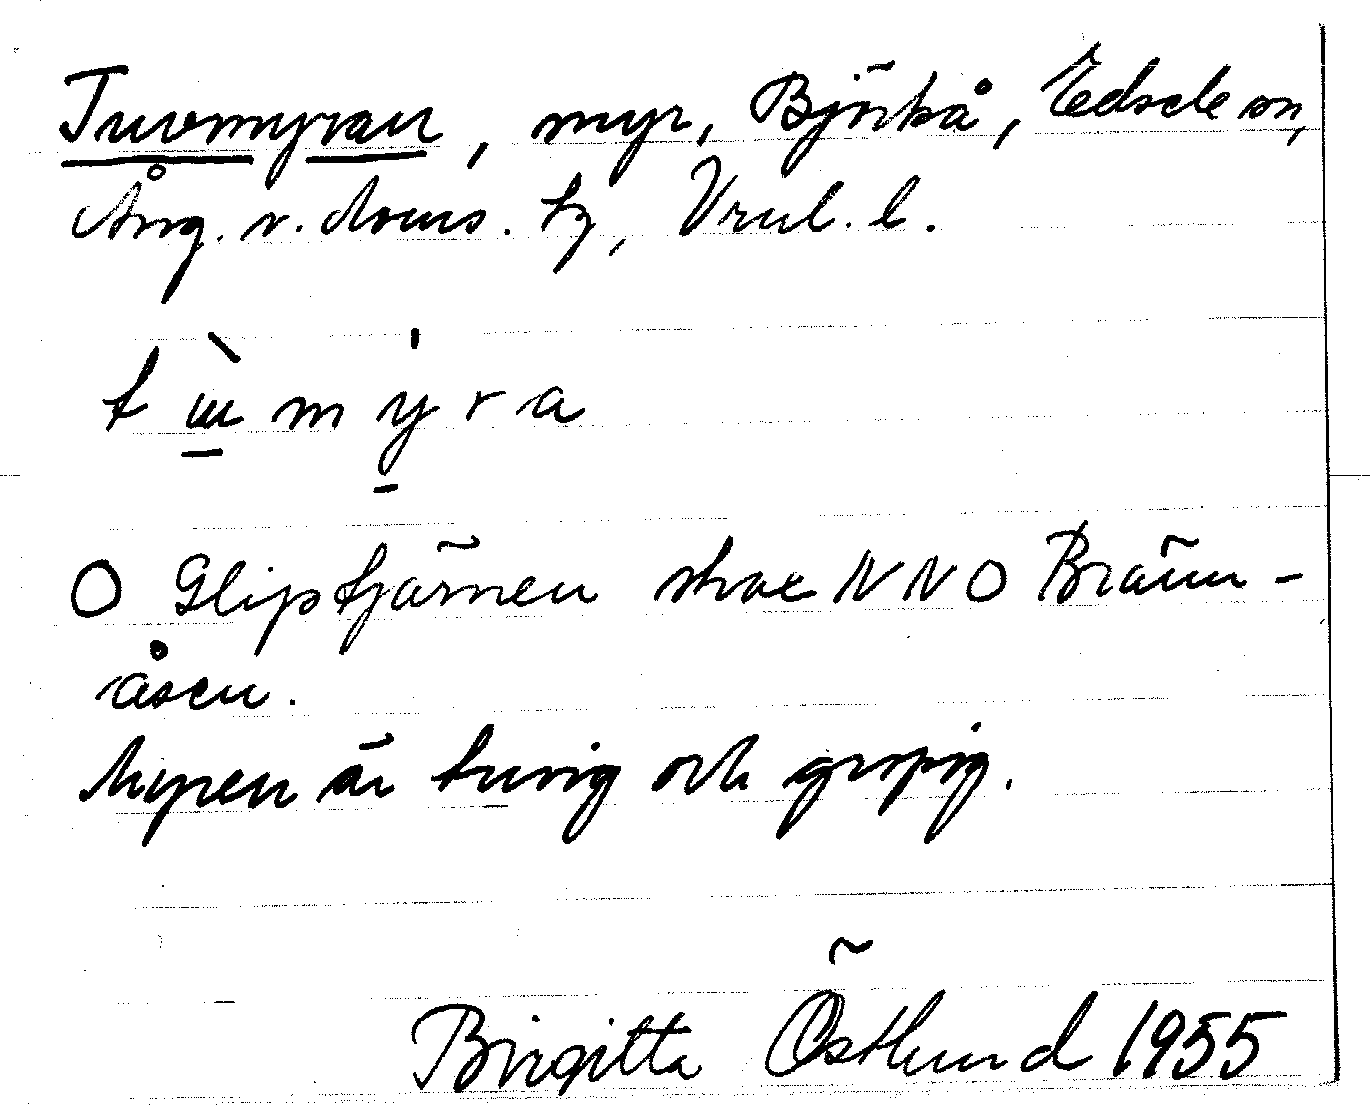 Tuvomyran, myr, Björkå, Edsele sn,
Ång. v. doms. tg, Vrnl. l.
O Gliptjärnen strax NNO Bränn-
åsen.
Myren är tuvig och gropig.
Birgitta Östlund 1955